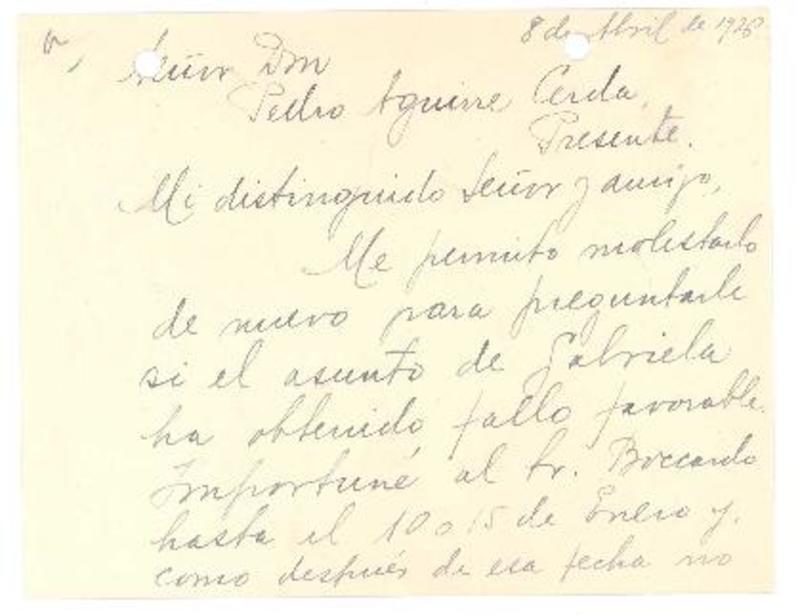 8 de Abril de 1926
Señor Don
Pedro Aguirre Cerda,
Presente.
Mi distinguido Señor y amigo,
Me permito molestarlo
de nuevo para preguntarle
si el asunto de Gabriela
ha obtenido fallo favorable.
Importuné al Sr. Boccardo
hasta el 10 o 15 de Enero y,
como después de esa fecha no